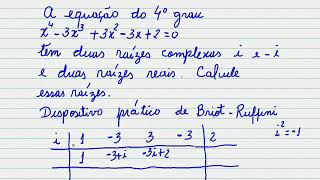 A equação do 4º grau
x⁴-3x³+3x²-3x+2=0
tem duas raízes complexas i e -i
e duas raízes reais. Calcule
essas raízes.
Dispositivo prático de Briot-Ruffini
i²=-1
i 1 -3 3 -3 2
1 -3+i -3i+2